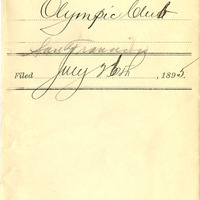 Olympic Club
San Francisco
Filed July 26th, 1895.